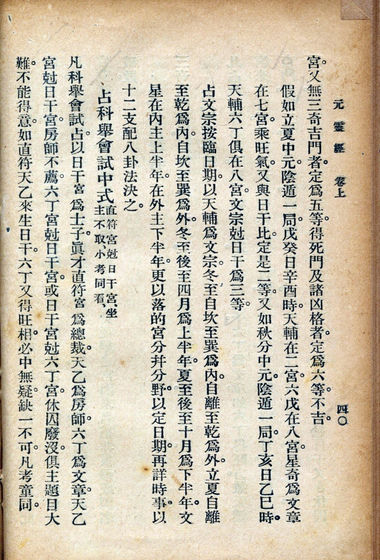 元靈經 卷上 四〇
宮又無三奇吉門者定爲五等得死門及諸凶格者定爲六等不吉。
假如立夏中元陰遁一局戊癸日辛酉時。天輔在二宮六戊在八宮星奇爲文章
在七宮乘旺氣又與日干比定是二等又如秋分中元陰遁一局丁亥日乙巳時。
天輔六丁俱在八宮文宗尅日干爲三等
占文宗按臨日期以天輔爲文宗冬至自坎至巽爲內自離至乾爲外立夏自離
至乾爲內自坎至巽爲外冬至後至四月爲上半年夏至後至十月爲下半年文
星在內主上半年在外主下半年更以落的宮分幷分野以定日期再詳時事以
十二支配八卦法決之。
占科舉會試中式 直符宮尅日干宮坐主不取小考同看
凡科舉會試占以日干宮爲士子眞才直符宮爲總裁天乙爲房師六丁爲文章天乙
宮尅日干宮房師不薦六丁宮尅日干宮或日干宮尅六丁宮休囚廢沒俱主題目大
難不能得意如直符天乙來生日干六丁又得旺相必中無疑缺一不可凡考童同